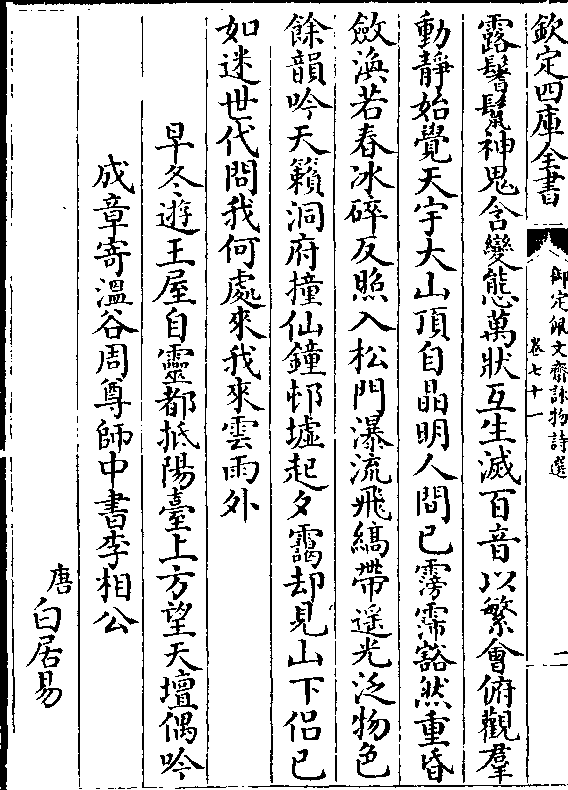 欽定四庫全書
御定佩文齋詠物詩選
卷七十一
二
露鬐鬛神鬼含變態萬狀互生滅百音以繁會俯觀羣
動靜始覺天宇大山頂自晶明人間已霶霈豁然重昏
斂渙若春冰碎反照入松門瀑流飛縞帶遥光泛物色
餘韻吟天籟洞府撞仙鐘邨墟起夕靄却見山下侣已
如迷世代問我何處來我來雲雨外
早冬遊王屋自靈都抵陽臺上方望天壇偶吟
成章寄溫谷周尊師中書李相公
唐白居易